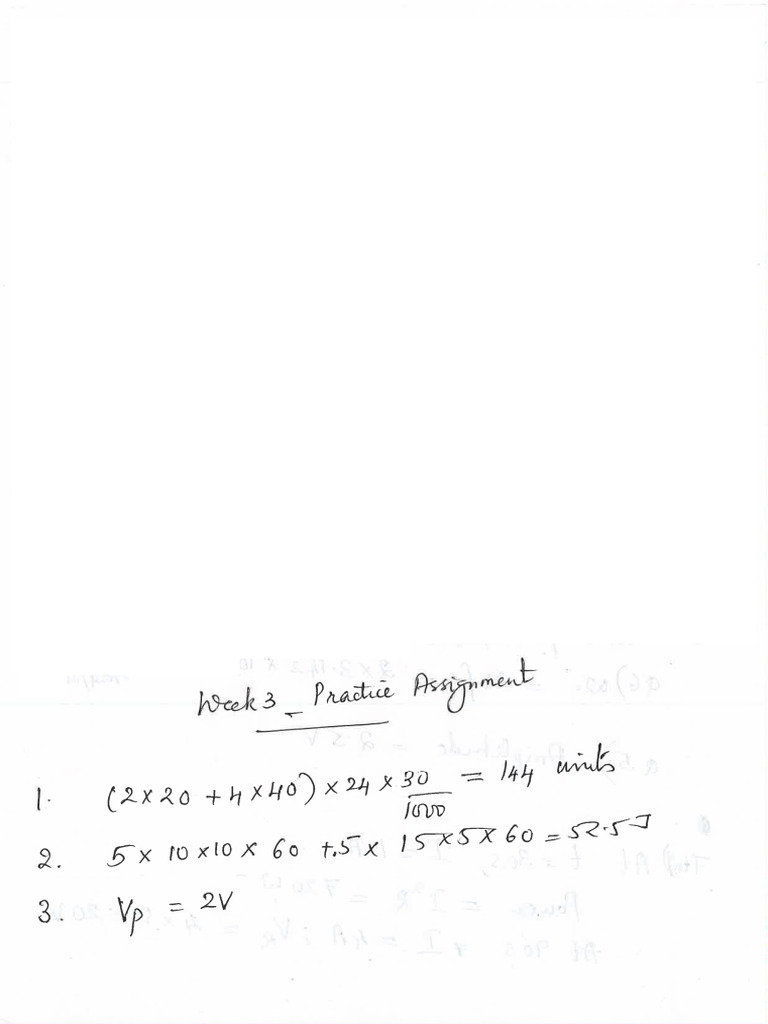 Week 3 - Practice Assignment
1. (2 x 20 + 4 x 40) x 24 x 30/1000 = 144 units
2. 5 x 10 x 10 x 60 + .5 x 15 x 5 x 60 = 52.5 J
3. Vp = 2V